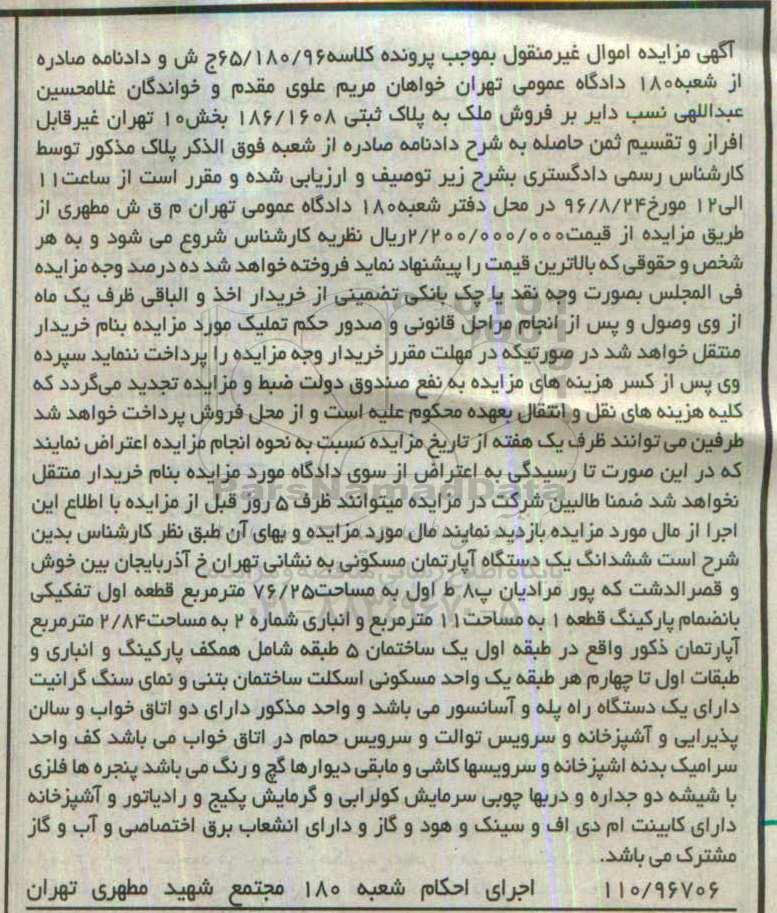 آگهی مزایده اموال غیرمنقول بموجب پرونده کلاسه۶۵/۱۸۰/۹۶ج ش و دادنامه صادره
از شعبه۱۸۰ دادگاه عمومی تهران خواهان مریم علوی مقدم و خواندگان غلامحسین
عبداللهی نسب دایر بر فروش ملک به پلاک ثبتی ۱۸۶/۱۶۰۸ بخش۱۰ تهران غیرقابل
افراز و تقسیم ثمن حاصله به شرح دادنامه صادره از شعبه فوق الذکر پلاک مذکور توسط
کارشناس رسمی دادگستری بشرح زیر توصیف و ارزیابی شده و مقرر است از ساعت۱۱
الی۱۲ مورخ۹۶/۸/۲۴ در محل دفتر شعبه۱۸۰ دادگاه عمومی تهران م ق ش مطهری از
طریق مزایده از قیمت۲/۲۰۰/۰۰۰/۰۰۰ریال نظریه کارشناس شروع می شود و به هر
شخص و حقوقی که بالاترین قیمت را پیشنهاد نماید فروخته خواهد شد ده درصد وجه مزایده
فی المجلس بصورت وجه نقد یا چک بانکی تضمینی از خریدار اخذ و الباقی ظرف یک ماه
از وی وصول و پس از انجام مراحل قانونی و صدور حکم تملیک مورد مزایده بنام خریدار
منتقل خواهد شد در صورتیکه در مهلت مقرر خریدار وجه مزایده را پرداخت ننماید سپرده
وی پس از کسر هزینه های مزایده به نفع صندوق دولت ضبط و مزایده تجدید می‌گردد که
کلیه هزینه های نقل و انتقال بعهده محکوم علیه است و از محل فروش پرداخت خواهد شد
طرفین می توانند ظرف یک هفته از تاریخ مزایده نسبت به نحوه انجام مزایده اعتراض نمایند
که در این صورت تا رسیدگی به اعتراض از سوی دادگاه مورد مزایده بنام خریدار منتقل
نخواهد شد ضمنا طالبین شرکت در مزایده میتوانند ظرف ۵ روز قبل از مزایده با اطلاع این
اجرا از مال مورد مزایده بازدید نمایند مال مورد مزایده و بهای آن طبق نظر کارشناس بدین
شرح است ششدانگ یک دستگاه آپارتمان مسکونی به نشانی تهران خ آذربایجان بین خوش
و قصرالدشت که پور مرادیان پ۸ ط اول به مساحت۷۶/۲۵ مترمربع قطعه اول تفکیکی
بانضمام پارکینگ قطعه ۱ به مساحت۱۱ مترمربع و انباری شماره ۲ به مساحت۲/۸۴ مترمربع
آپارتمان ذکور واقع در طبقه اول یک ساختمان ۵ طبقه شامل همکف پارکینگ و انباری و
طبقات اول تا چهارم هر طبقه یک واحد مسکونی اسکلت ساختمان بتنی و نمای سنگ گرانیت
دارای یک دستگاه راه پله و آسانسور می باشد و واحد مذکور دارای دو اتاق خواب و سالن
پذیرایی و آشپزخانه و سرویس توالت و سرویس حمام در اتاق خواب می باشد کف واحد
سرامیک بدنه اشپزخانه و سرویسها کاشی و مابقی دیوارها گچ و رنگ می باشد پنجره ها فلزی
با شیشه دو جداره و دربها چوبی سرمایش کولرابی و گرمایش پکیج و رادیاتور و آشپزخانه
دارای کابینت ام دی اف و سینک و هود و گاز و دارای انشعاب برق اختصاصی و آب و گاز
مشترک می باشد.
۱۱۰/۹۶۷۰۶ اجرای احکام شعبه ۱۸۰ مجتمع شهید مطهری تهران
ParsNamadData